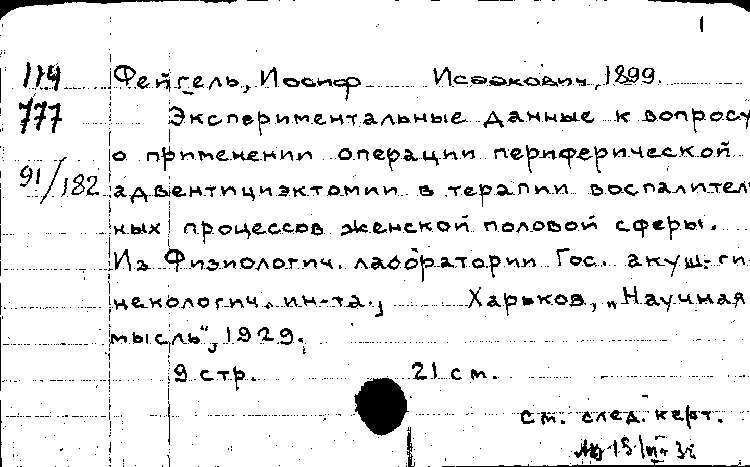 1
114
777
91/182
Фейгель, Иосиф Исаакович, 1899.
Экспериментальные данные к вопросу
о применении операции периферической
адвентициэктомии в терапии воспалитель
ных процессов женской половой сферы.
Из Физиологич. лаборатории Гос. акуш.-ги
некологич. ин-та., Харьков, „Научная
мысль", 1929.
9 стр. 21 см.
см. след. карт.